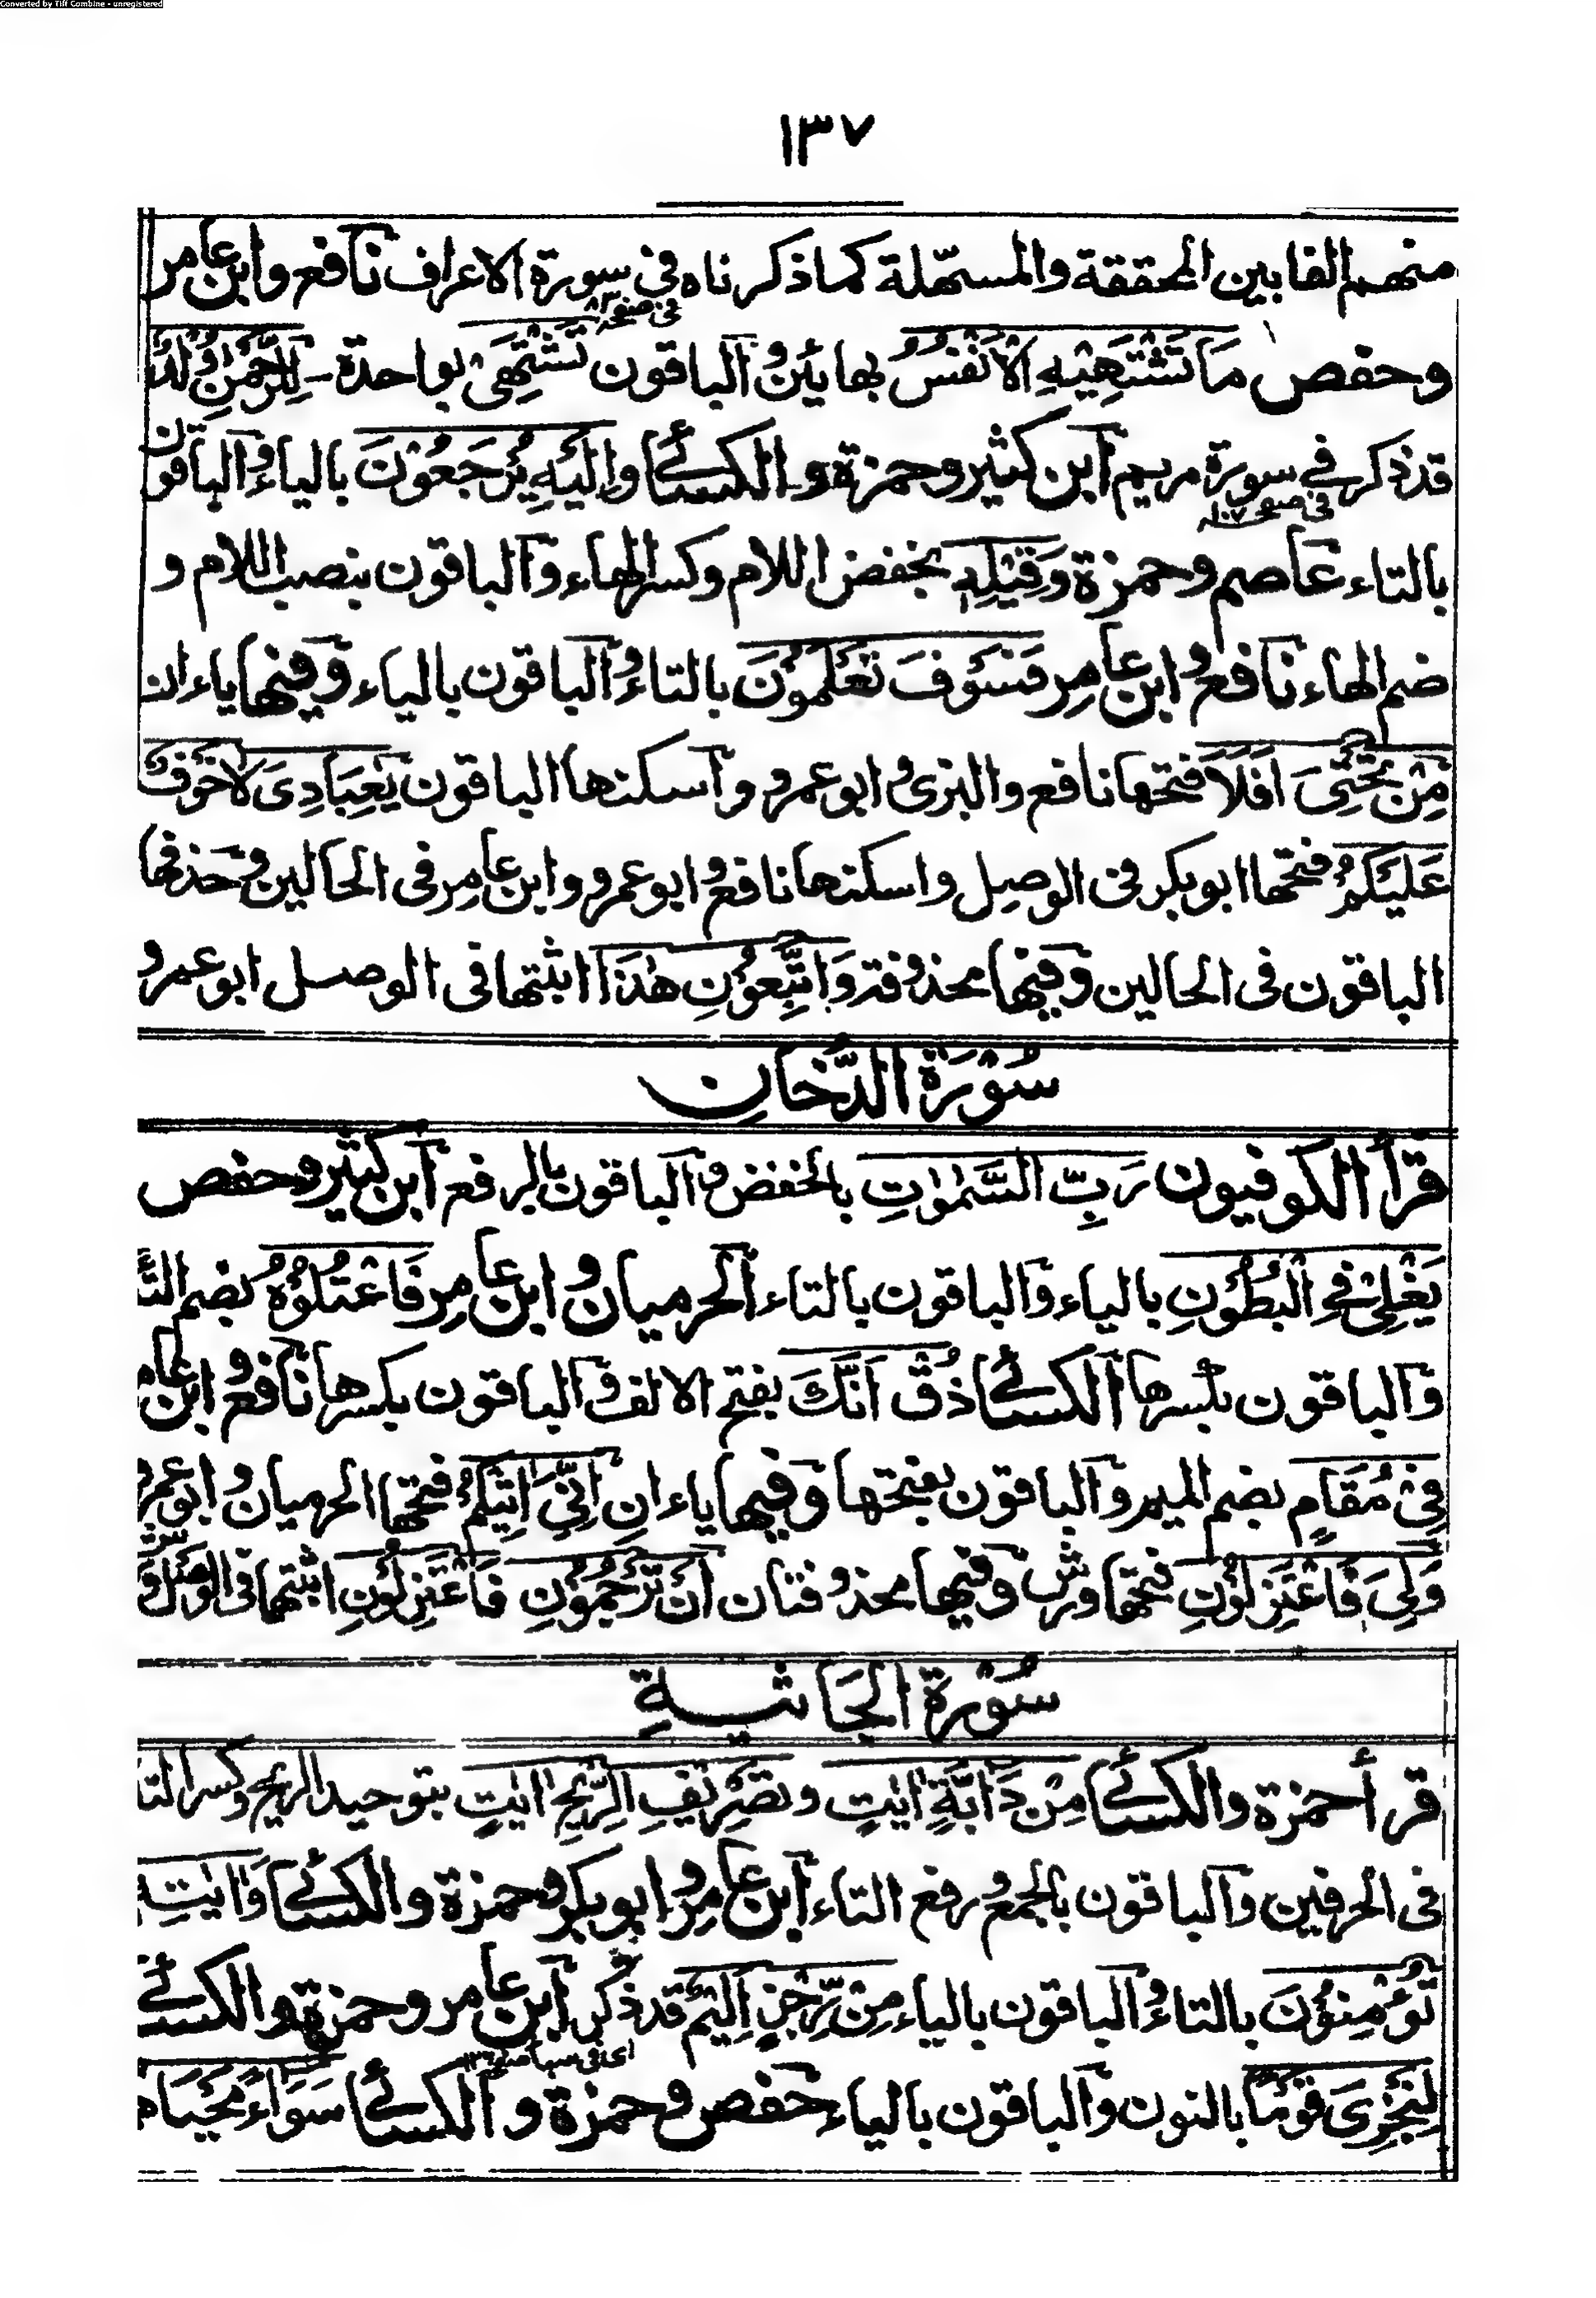 Converted by Tiff Combine - unregistered
١٣٧
منهم الفا بين المحققة والمسهّلة كما ذكرناه في سورة الاعراف نافع وابن عامر
في صفحه
وحفص مَا تَشْتَهِيْهِ الْاَنْفُسُ بهايئن و الباقون تَشْتَهِىْ بواحدة - لِلرَّحْمٰنِ وُلْدٌ
قد ذكر في سورة مريم ابن كثير وحمزة والكسائے واِلَيْهِ يُرْجَعُوْنَ بالياء و الباقون
في صفحه ١٠٧
بالتاء عاصم وحمزة وَقِيْلِهٖ بخفض اللام وكسر الهاء والباقون بنصب اللام و
ضم الهاء نافع و ابن عامر فَسَوْفَ تَعْلَمُوْنَ بالتاء و الباقون بالياء وفيها ياء ان
مِنْ تَحْتِىَ اَفَلَا فتحها نافع والبزى و ابو عمرو واسكنها الباقون يٰعِبَادِىَ لَا خَوْفٌ
عَلَيْكُمْ فتحها ابو بكر فى الوصل واسكنها نافع و ابو عمرو وابن عامر فى الحالين وحذفها
الباقون فى الحالين وفيها محذوفة وَاتَّبِعُوْنِ هٰذَا اثبتها فى الوصل ابو عمرو
سُوْرَةُ الدُّخَانِ
قرأ الكوفيون رَبِّ السَّمٰوٰتِ بالخفض و الباقون بالرفع ابن كثير وحفص
يَغْلِىْ فِى الْبُطُوْنِ بالياء والباقون بالتاء الحرميان و ابن عامر فَاعْتُلُوْهُ بضم التا
والباقون بكسرها الكسائے ذُقْ اَنَّكَ بفتح الالف و الباقون بكسرها نافع و ابن عامر
فِىْ مُقَامٍ بضم الميم والباقون بفتحها وفيها ياء ان اِنِّىَ اٰتِيْكُمْ فتحها الحرميان و ابو عمرو
وَلِىَ فَاعْتَزِلُوْنِ فتحها ورش وفيها محذوفتان اَنْ تَرْجُمُوْنِ فَاعْتَزِلُوْنِ اثبتها فى الوصل ورش
سُوْرَةُ الجَاثِيَةِ
قرأ حمزة والكسائے مِنْ دَابَّةٍ اٰيٰتٍ وتَصْرِيْفِ الرِّيْحِ اٰيٰتٍ بتوحيد الريح وكسر التا
فى الحرفين والباقون بالجمع و رفع التاء ابن عامر و ابو بكر وحمزة والكسائے وَاٰيٰتِهٖ
تُؤْمِنُوْنَ بالتاء و الباقون بالياء مِنْ رِّجْزٍ اَلِيْمٍ قد ذكر ابن عامر وحمزة والكسائے
اى فى سبا صفحه
لِنَجْزِىَ قَوْمًا بالنون والباقون بالياء حفص وحمزة والكسائے سَوَآءً مَّحْيَاهُمْ